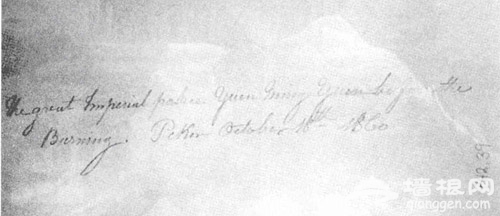 The great Imperial palace Yuen Ming Yuen before the
Burning. Pekin October 18th 1860
墙根网
qianggen.com